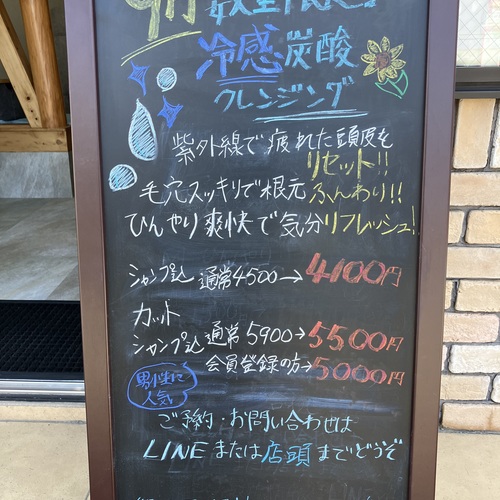 9月 数量限定!
冷感炭酸
クレンジング
紫外線で疲れた頭皮を
リセット!!
毛穴スッキリで根元ふんわり!!
ひんやり爽快で気分リフレッシュ!
シャンプ込 通常4500→4100円
カット
シャンプ込 通常5900→5500円
会員登録の方→5000円
男性に
人気
ご予約・お問い合わせは
LINEまたは店頭までどうぞ